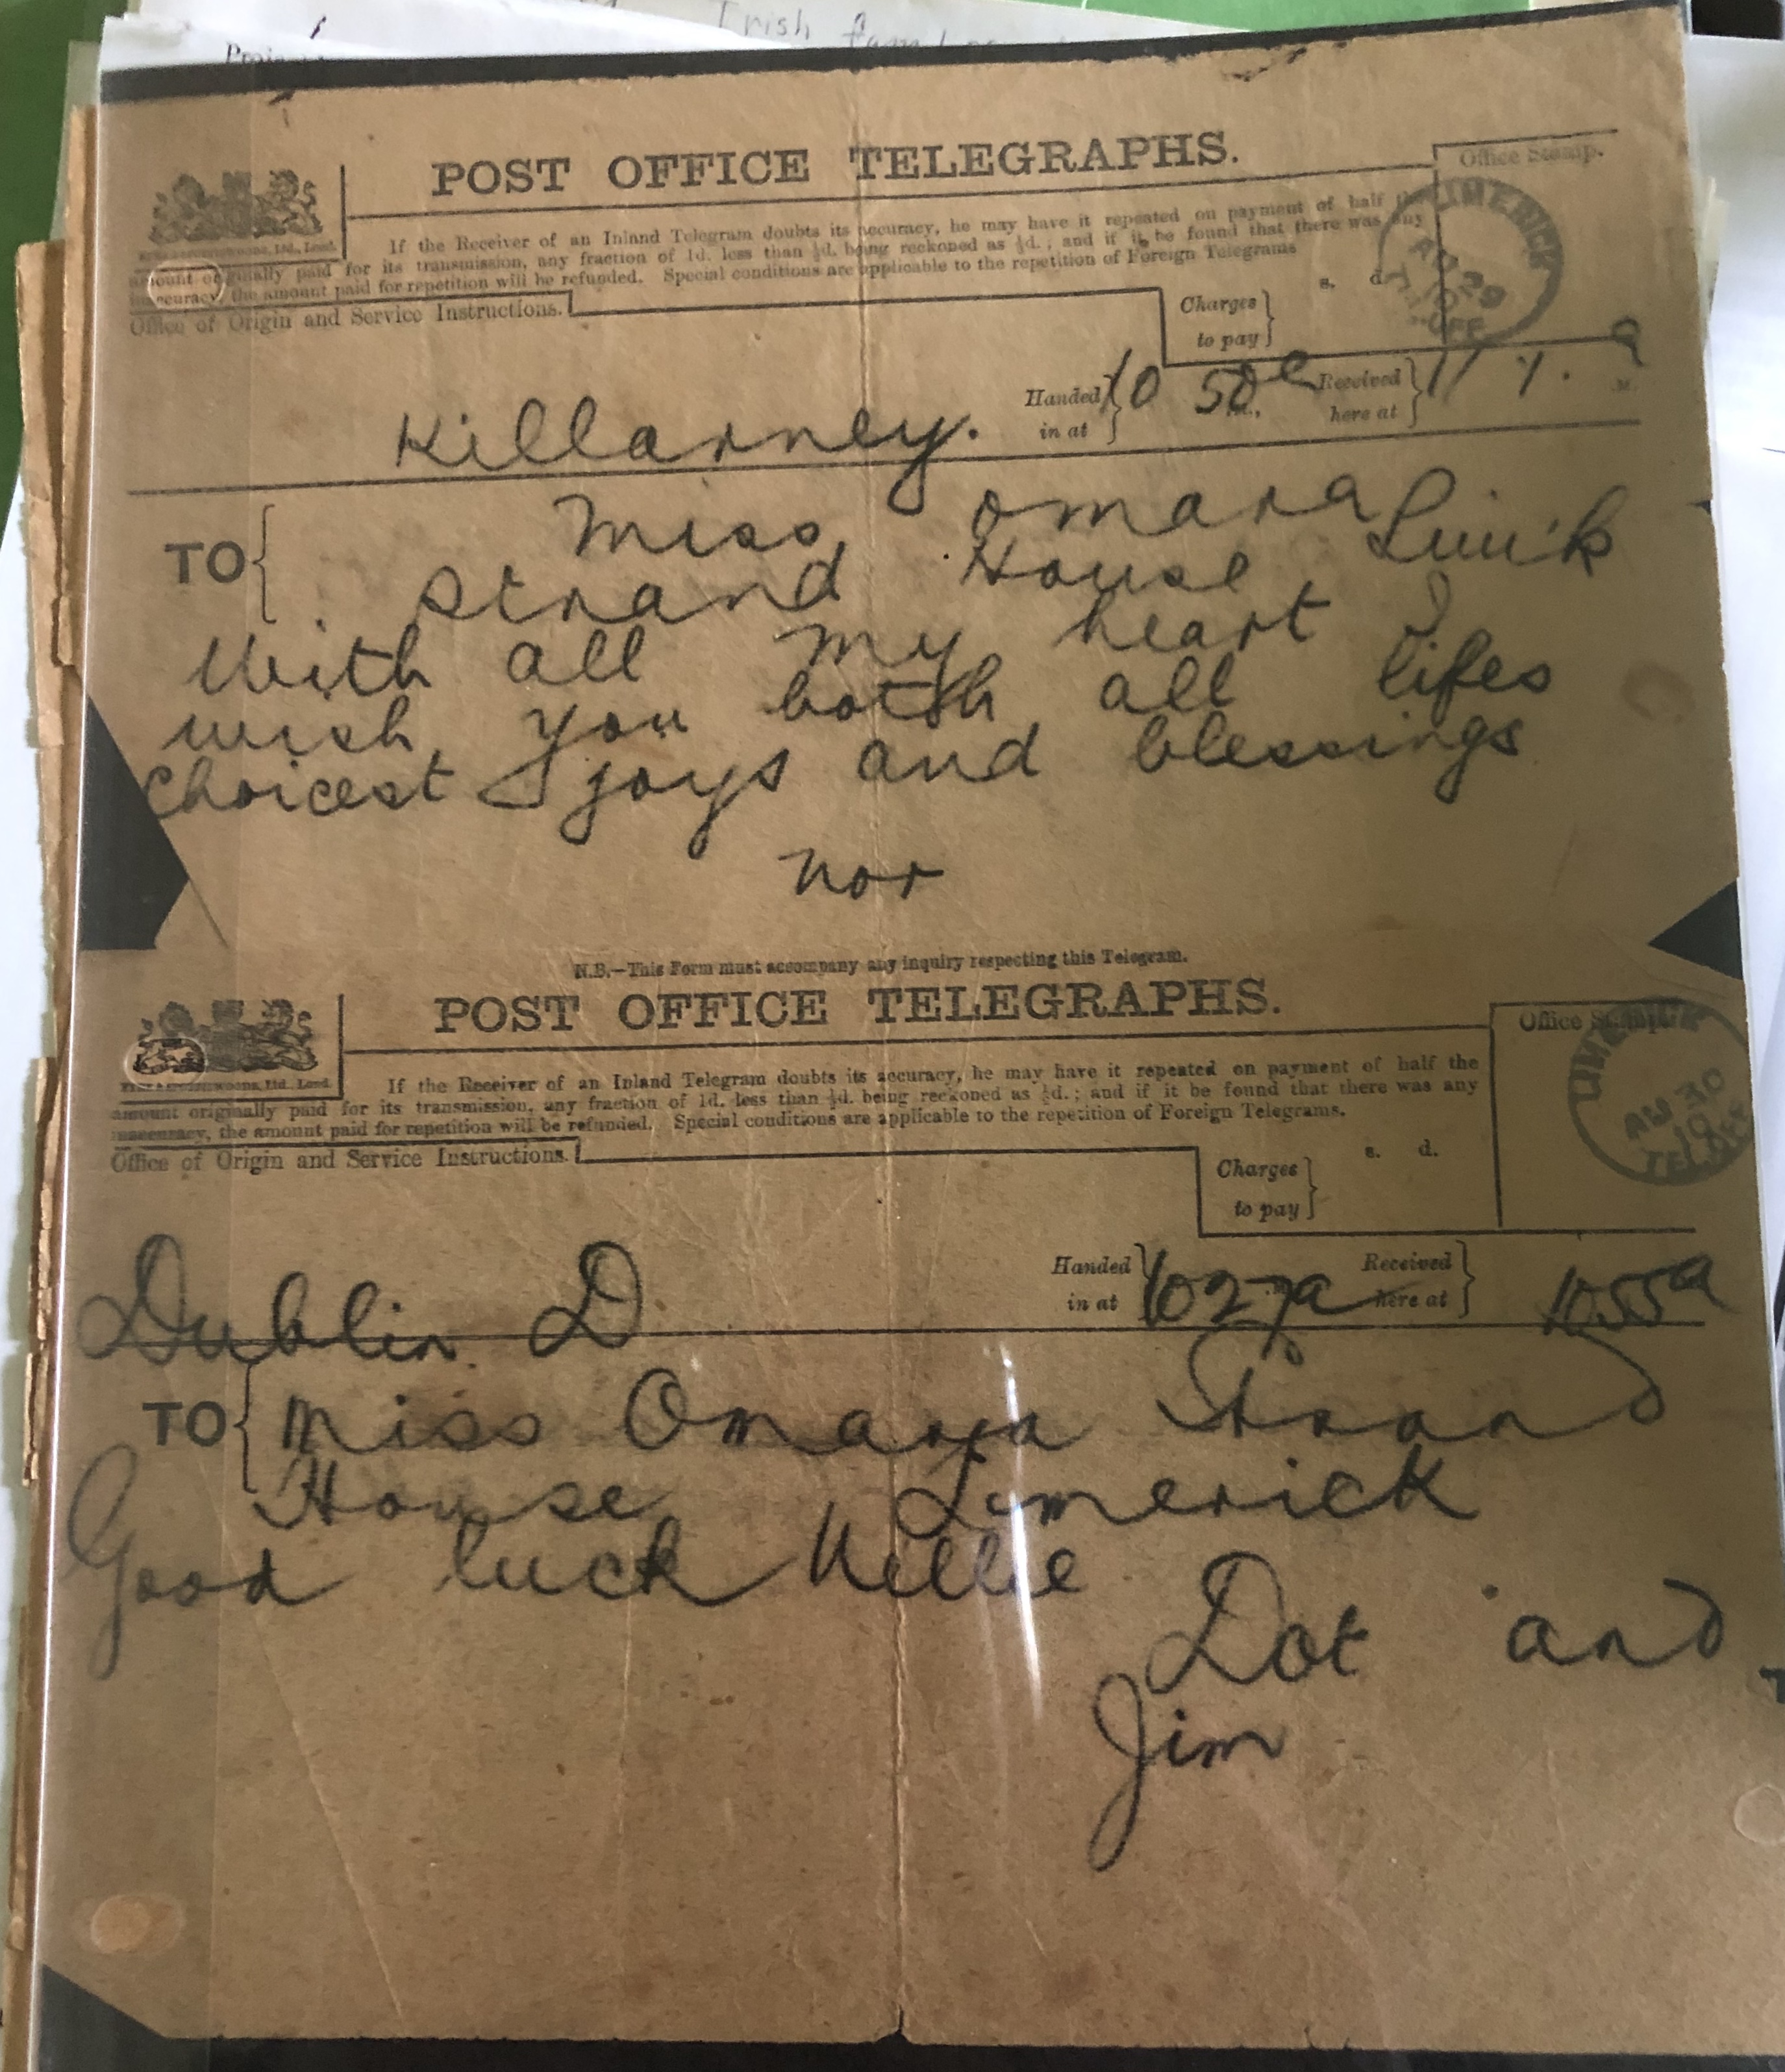 Irish
POST OFFICE TELEGRAPHS.
Office Stamp.
If the Receiver of an Inland Telegram doubts its accuracy, he may have it repeated on payment of half the
amount originally paid for its transmission, any fraction of 1d. less than ½d. being reckoned as ½d.; and if it be found that there was any
inaccuracy, the amount paid for repetition will be refunded. Special conditions are applicable to the repetition of Foreign Telegrams
LIMERICK
AU 29
10
Office of Origin and Service Instructions.
Charges to pay
s. d.
Killarney.
Handed in at 10 50
Received here at 11
TO Miss Omara
Strand House
With all my heart I
wish you both all lifes
choicest joys and blessings
nor
N.B.—This Form must accompany any inquiry respecting this Telegram.
POST OFFICE TELEGRAPHS.
Office Stamp.
If the Receiver of an Inland Telegram doubts its accuracy, he may have it repeated on payment of half the
amount originally paid for its transmission, any fraction of 1d. less than ½d. being reckoned as ½d.; and if it be found that there was any
inaccuracy, the amount paid for repetition will be refunded. Special conditions are applicable to the repetition of Foreign Telegrams.
LIMERICK
AU 30
10
TEL. OFF
Office of Origin and Service Instructions.
Charges to pay
s. d.
Dublin D
Handed in at 1027a
Received here at 1055a
TO Miss Omara Strand
House Limerick
Good luck
Dot and
Jim